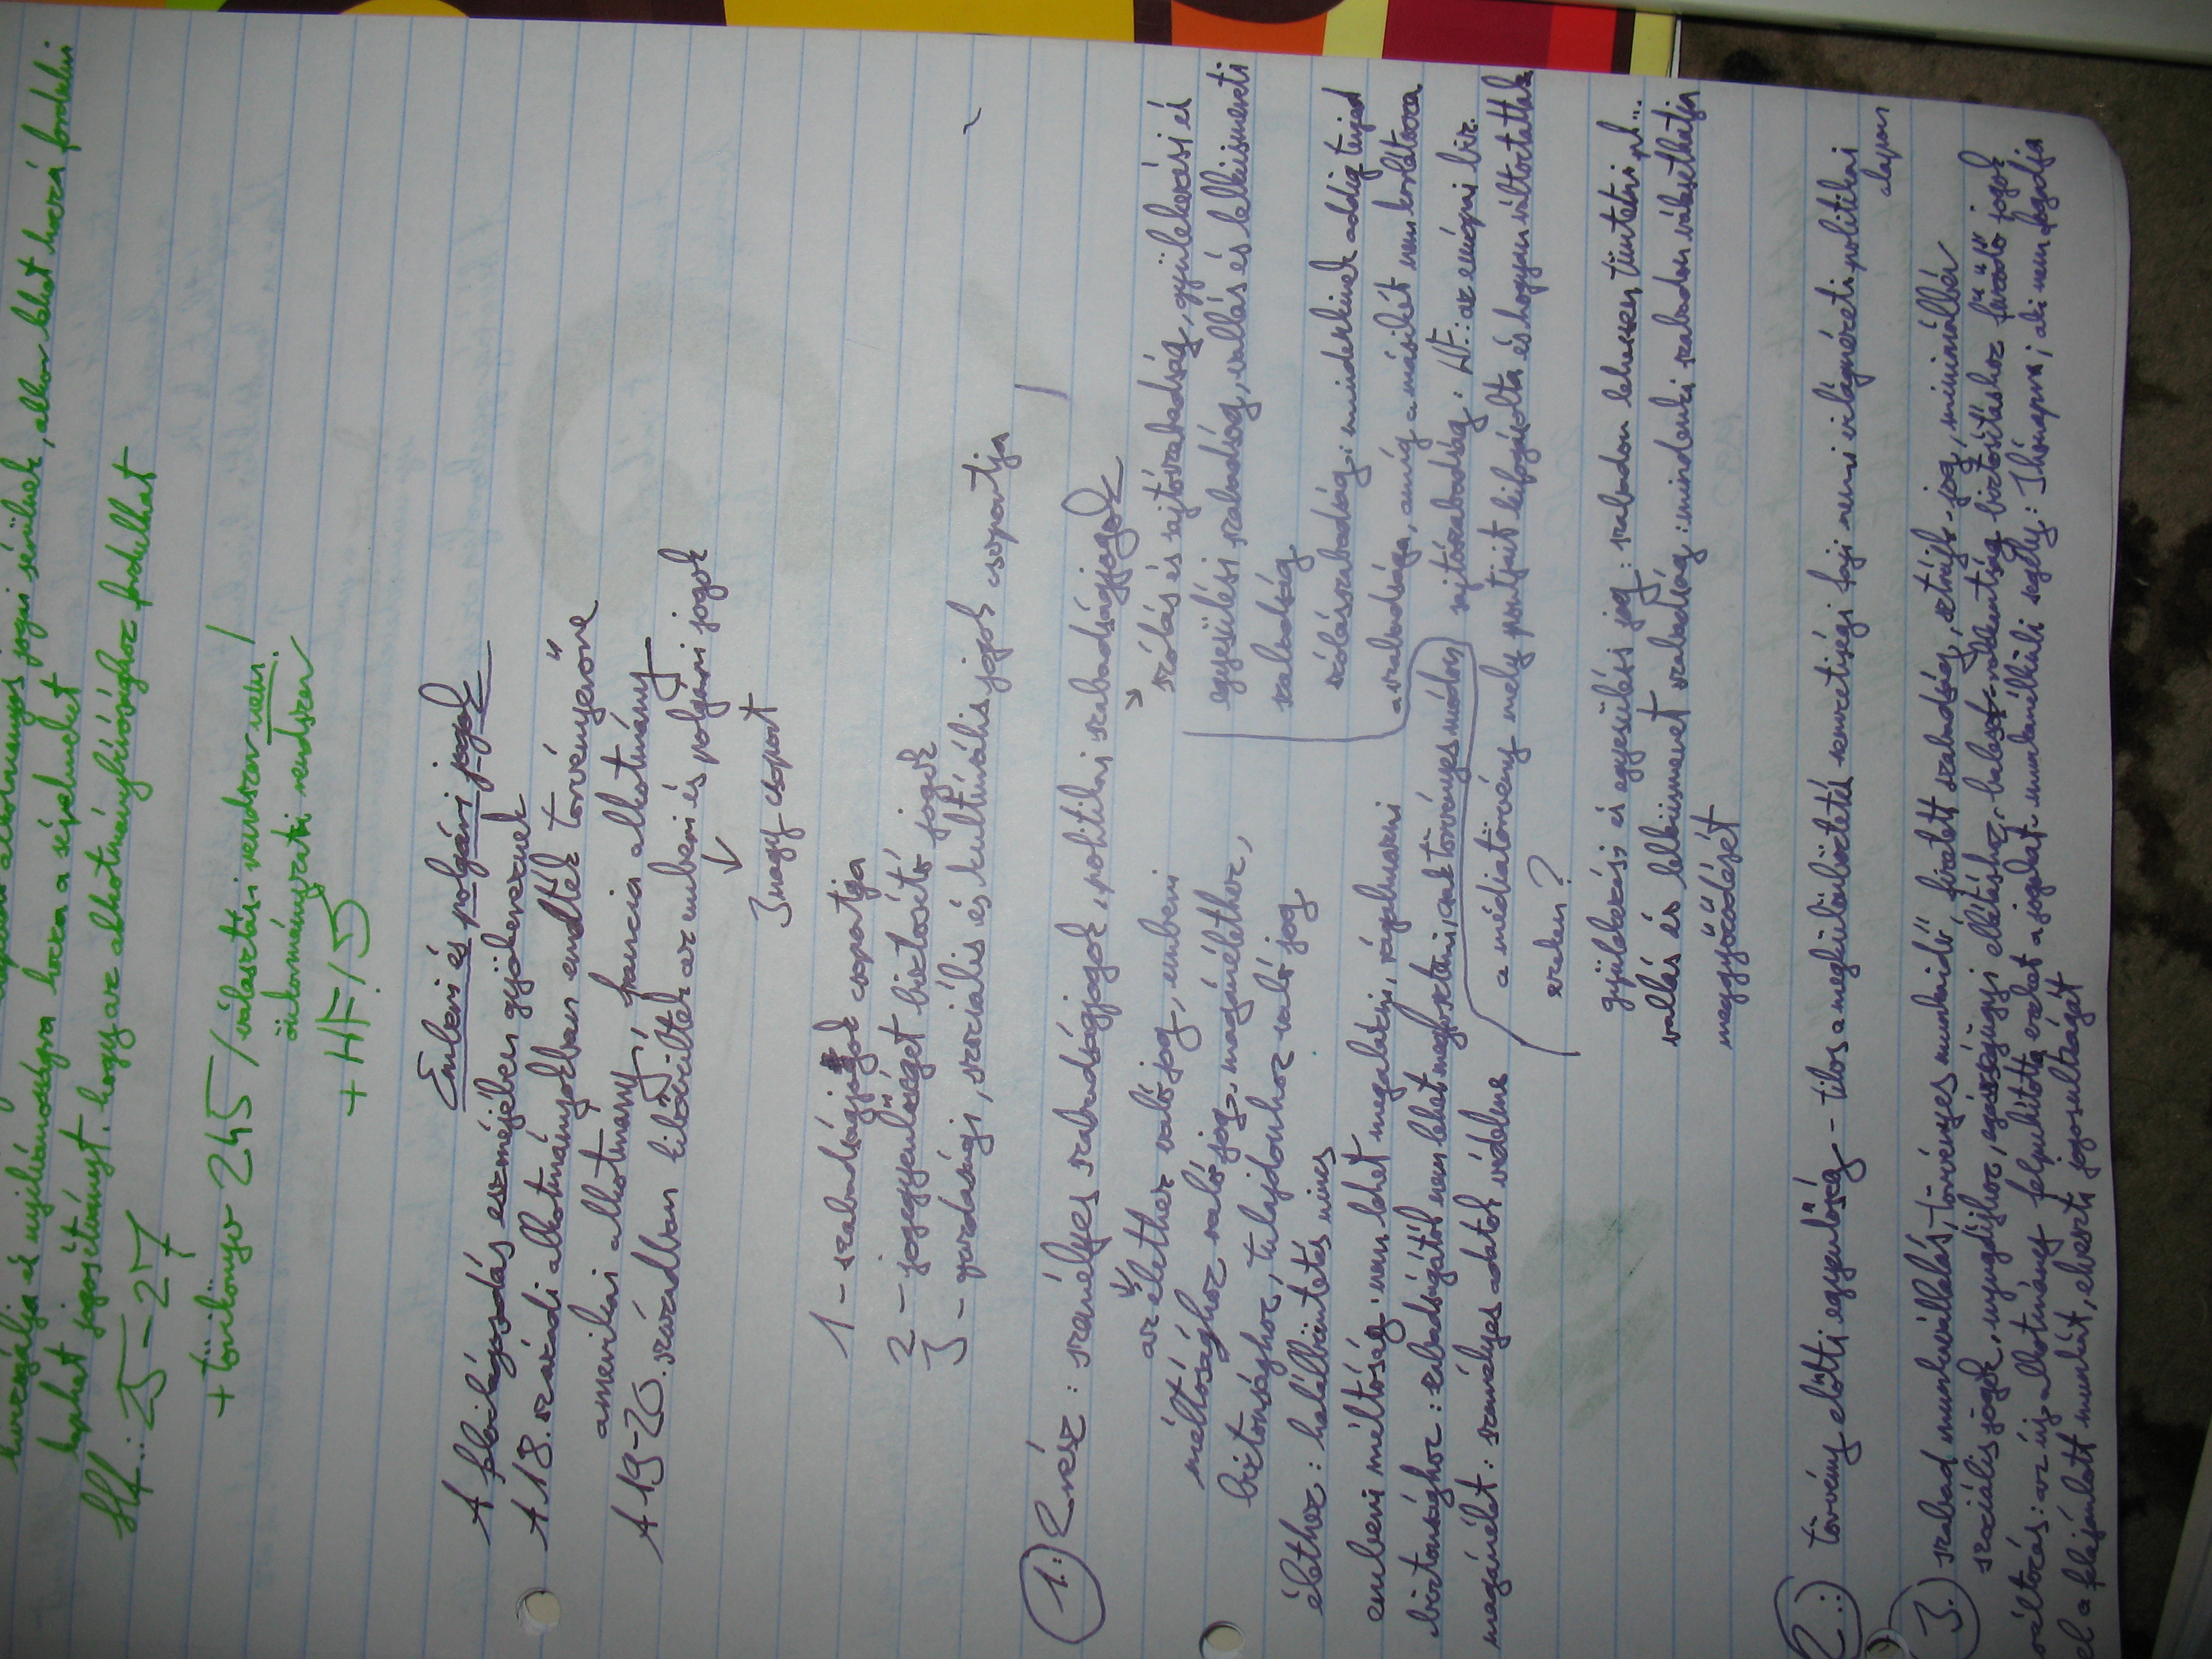 kivizsgálja és nyilvánosságra hozza a sérelmeket
alkotmányos jogai sérülnek, akkor lehet hozzá fordulni
kaphat jogosítványt, hogy az alkotmánybírósághoz fordulhat
Hf.: 25-27
+ törikönyv 245/választási rendszer nem!
önkormányzati rendszer
+ HF/5
Emberi és polgári jogok
A felvilágosodás eszméjében gyökereznek
A 18. századi alkotmányokban emelték törvényerőre
amerikai alkotmány, francia alkotmány
A 19-20. században kibővültek az emberi és polgári jogok
↓
3 nagy csoport
1 - szabadságjogok csoportja
2 - jogegyenlőséget biztosító jogok
3 - gazdasági, szociális és kulturális jogok csoportja
1.: 2 rész: személyes szabadságjogok, politikai szabadságjogok
az élethez való jog, emberi
méltósághoz való jog, magánélethez,
biztonsághoz, tulajdonhoz való jog
élethez: halálbüntetés nincs
emberi méltóság: nem lehet megalázni, rágalmazni
biztonsághoz: szabadságától nem lehet megfosztani, csak törvényes módon
magánélet: személyes adatok védelme
szólás és sajtószabadság, gyülekezési és
egyesülési szabadság, vallás és lelkiismereti
szabadság
szólásszabadság: mindenkinek addig terjed
a szabadsága, amíg a másikét nem korlátozza
sajtószabadság: HF.: az európai biz.
a médiatörvény mely pontjait kifogásolta és hogyan változtattak
ezeken?
gyülekezési és egyesülési jog: szabadon lehessen tüntetni pl...
vallás és lelkiismeret szabadság: mindenki szabadon választhatja
meggyőződését
2.: törvény előtti egyenlőség - tilos a megkülönböztetés nemzetiségi faji nemi világnézeti politikai
alapon
3. szabad munkavállalás, törvényes munkaidő, fizetett szabadság, sztrájk-jog, minimálbér
szociális jogok, nyugdíjhoz, egészségügyi ellátáshoz, baleset-rokkantság biztosításhoz fűződő jogok
változás: az új alkotmány felpuhította ezeket a jogokat. munkanélküli segély: 3 hónapra; aki nem fogadja
el a felajánlott munkát, elveszti jogosultságát